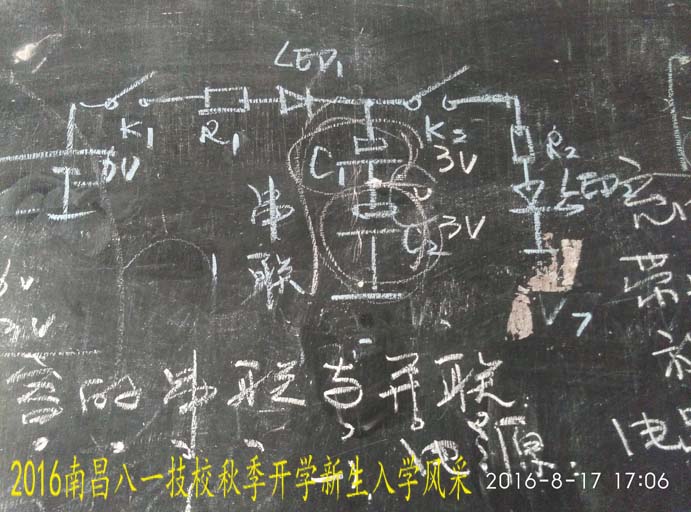 LED₁
K₁ R₁ K₂ R₂
6V C₁ 3V LED₂
串
联 C₂ 3V
3V
的串联与并联
电源.
2016南昌八一技校秋季开学新生入学风采 2016-8-17 17:06